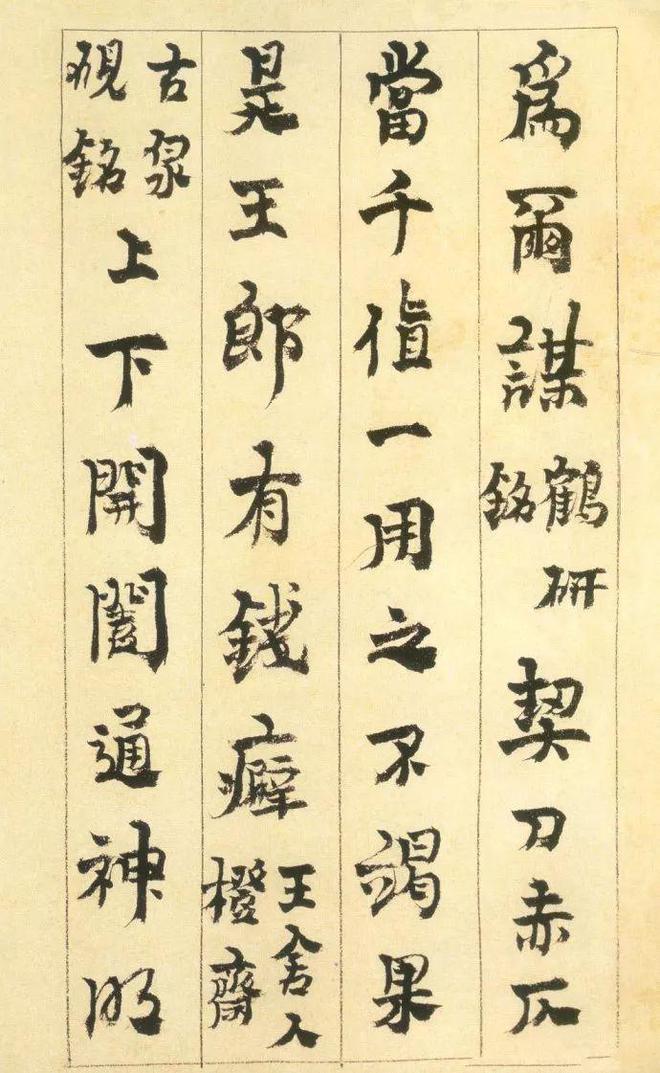 爲爾謀鶴研銘契刀赤仄
當千值一用之不竭果
是王郎有錢癖王舍人橙齋
古泉硯銘上下開闔通神明